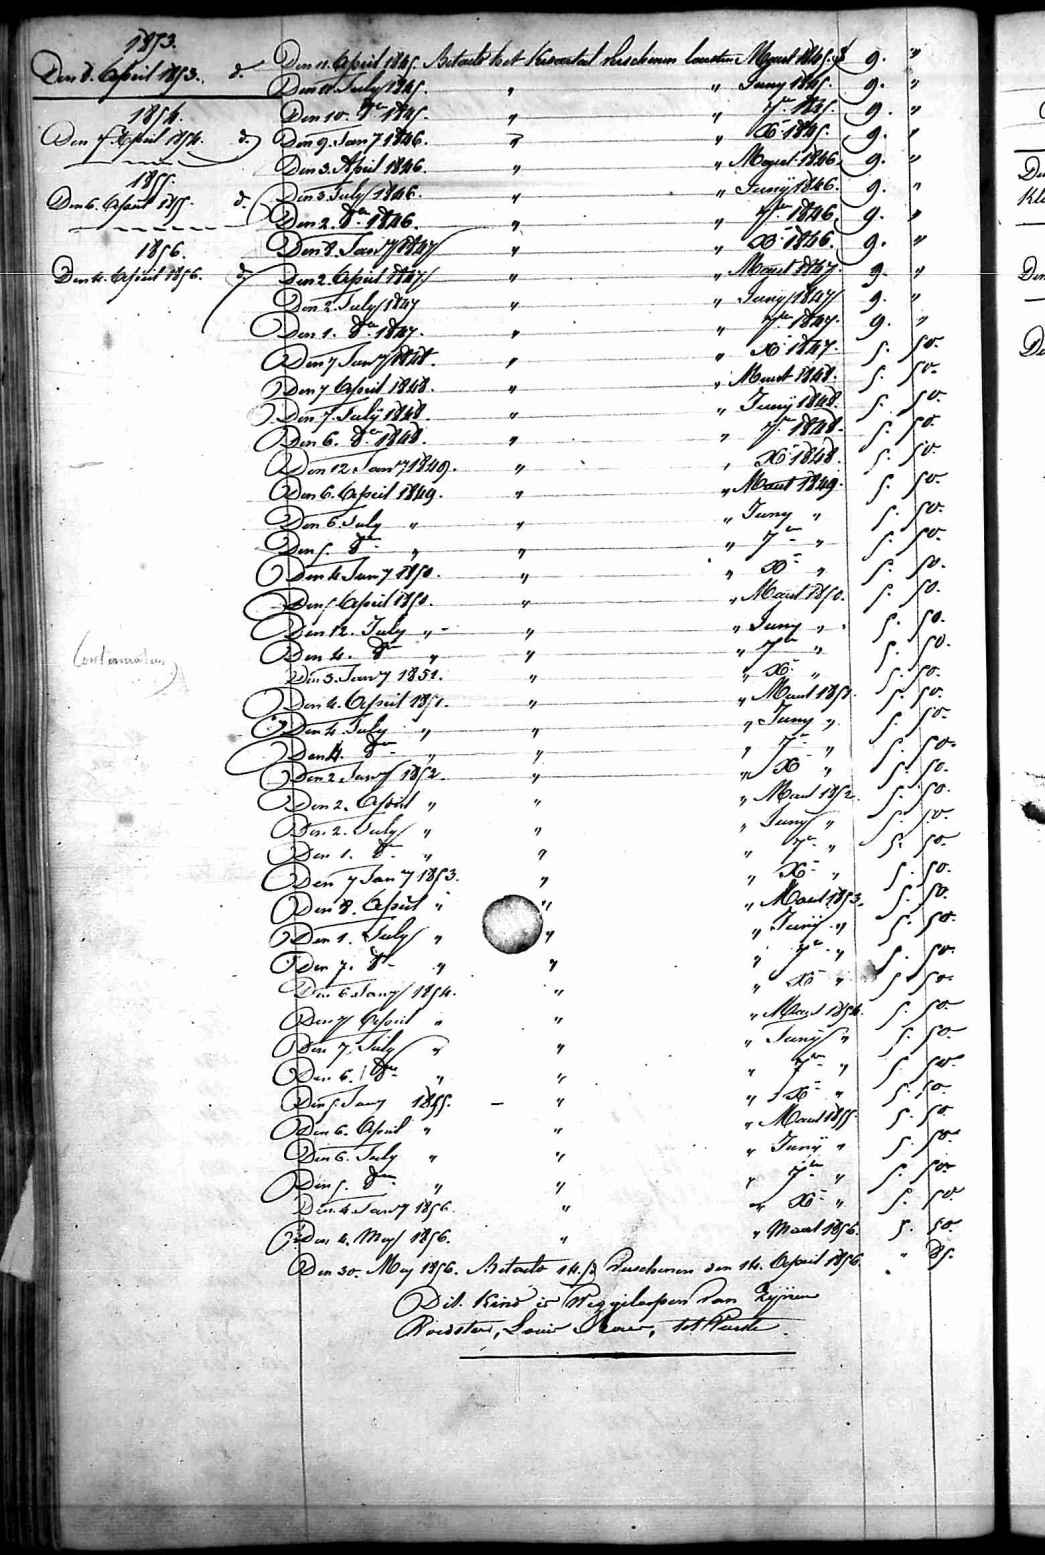 1853.
Den 8. April 1853. d.
1854.
Den 7. April 1854. d.
1855.
Den 6. April 1855. d.
1856.
Den 4. April 1856. d.
Den 11. April 1845. Betaald het Kwartaal verschenen Maart 1845. f 9. "
Den 11. July 1845. " " Juny 1845. 9. "
Den 10. 8er 1845. " " 7er 1845. 9. "
Den 9. Jany 1846. " " Xr 1845. 9. "
Den 3. April 1846. " " Maart 1846. 9. "
Den 3. July 1846. " " Junij 1846. 9. "
Den 2. 8er 1846. " " 7er 1846. 9. "
Den 8. Jany 1847 " " Xr 1846. 9. "
Den 2. April 1847 " " Maart 1847. 9. "
Den 2. July 1847 " " Juny 1847 9. "
Den 1. 8er 1847. " " 7er 1847. 9. "
Den 7 Jany 1848. " " Xr 1847. 5. 50.
Den 7 April 1848. " " Maart 1848. 5. 50.
Den 7. July 1848. " " Junij 1848. 5. 50.
Den 6. 8er 1848. " " 7er 1848. 5. 50.
Den 12. Jany 1849. " " Xr 1848. 5. 50.
Den 6. April 1849. " " Maart 1849. 5. 50.
Den 6. July " " " Juny " 5. 50.
Den 5. 8er " " " 7er " 5. 50.
Den 4 Jany 1850. " " Xr " 5. 50.
Den 5 April 1850. " " Maart 1850. 5. 50.
Den 12. July " " " Juny " 5. 50.
Den 4. 8er " " " 7er " 5. 50.
Den 3. Jany 1851. " " Xr " 5. 50.
Den 4. April 1851. " " Maart 1851. 5. 50.
Den 4 July " " " Juny " 5. 50.
Den 4. 8er " " " 7er " 5. 50.
Den 2 Jany 1852. " " Xr " 5. 50.
Den 2. April " " " Maart 1852. 5. 50.
Den 2. July " " " Juny " 5. 50.
Den 1. 8er " " " 7er " 5. 50.
Den 7 Jany 1853. " " Xr " 5. 50.
Den 8. April " " " Maart 1853. 5. 50.
Den 1. July " " " Junij " 5. 50.
Den 7. 8er " " " 7er " 5. 50.
Den 6 Jany 1854. " " Xr " 5. 50.
Den 7 April " " " Maart 1854. 5. 50.
Den 7. July " " " Junij " 5. 50.
Den 6. 8er " " " 7er " 5. 50.
Den 5 Jany 1855. " " Xr " 5. 50.
Den 6. April " " " Maart 1855. 5. 50.
Den 6. July " " " Junij " 5. 50.
Den 5. 8er " " " 7er " 5. 50.
Den 4 Jany 1856. " " Xr " 5. 50.
Den 4. May 1856. " " Maart 1856. 5. 50.
Den 30. Mey 1856. Betaald 14/d Verschenen den 14. April 1856. " 85.
Dit Kind is Weggeloopen van Zijnen
Voedster, Louis